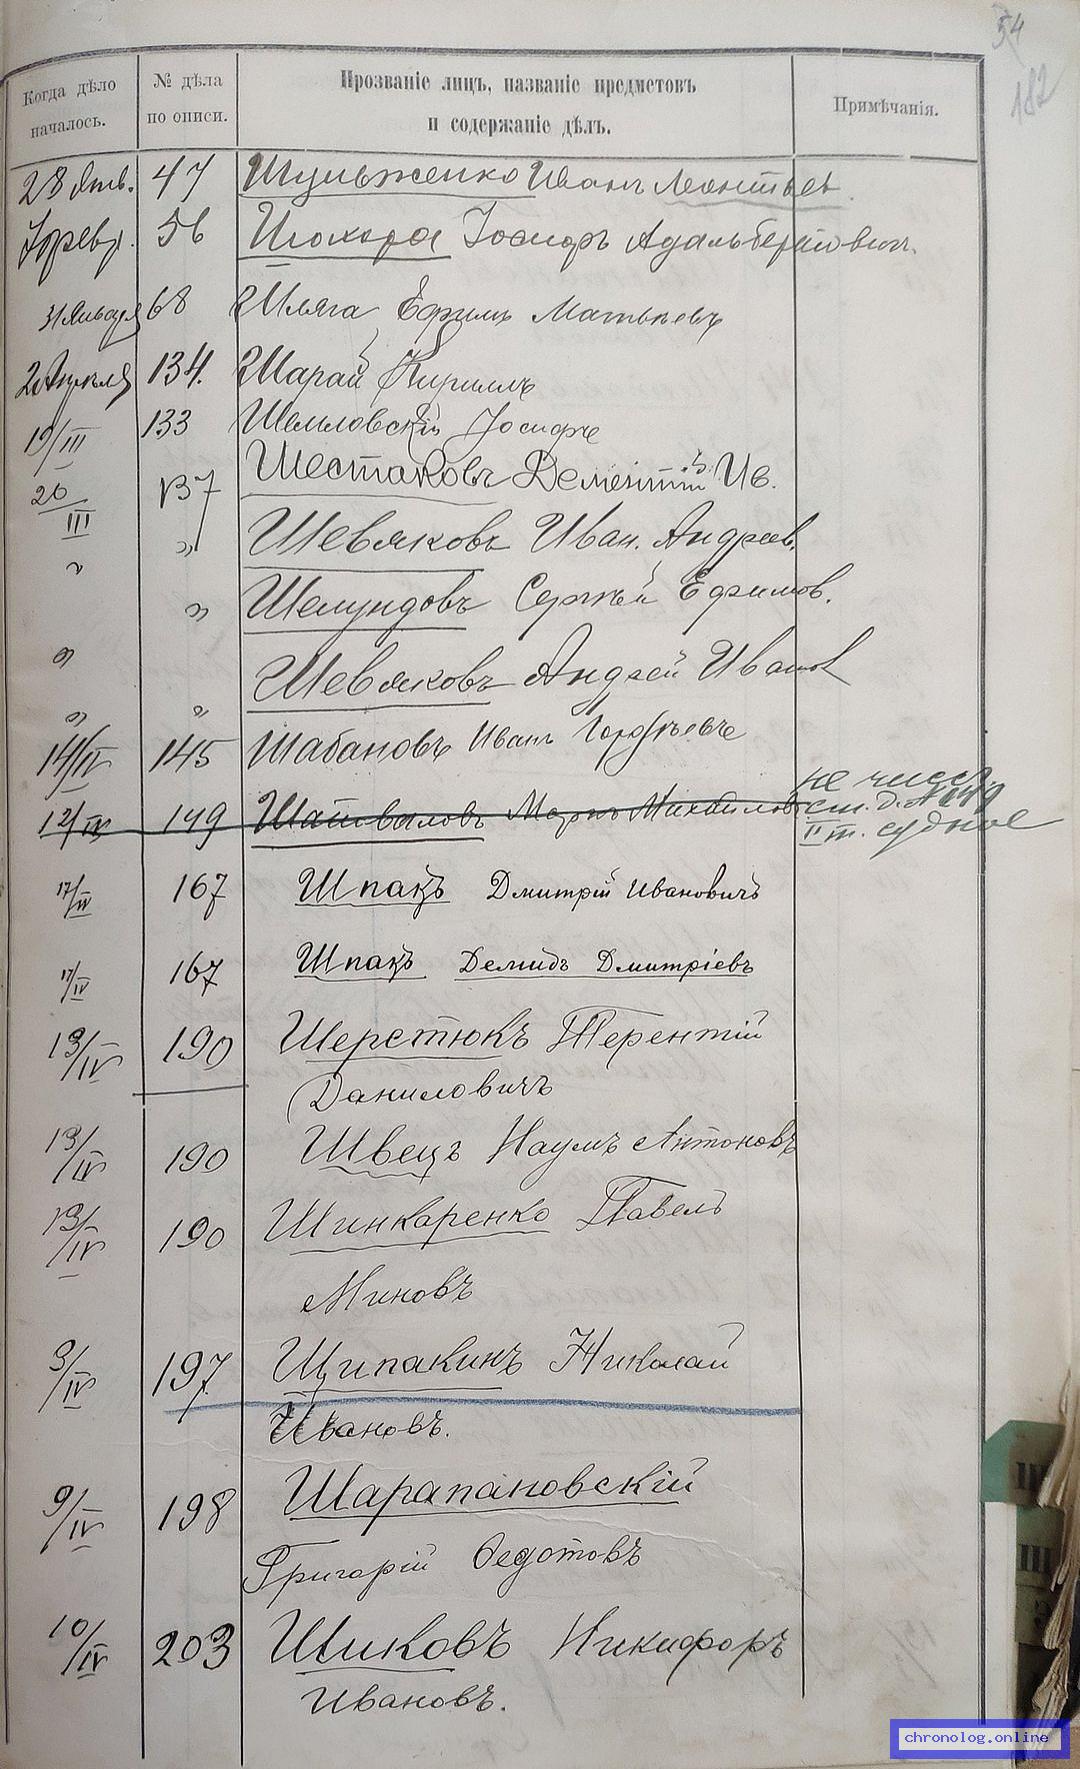 54
182
Когда дѣло началось.
№ дѣла по описи.
Прозваніе лицъ, названіе предметовъ и содержаніе дѣлъ.
Примѣчанія.
28 Янв. 47 Шульженко Иванъ Леонтьев
7 феврл. 56 Шохора Іосифъ Адальбертович.
31 Января 68 Шляга Ефимъ Матвѣевъ
2 Апрѣля 134. Шарай Кириллъ
19/III 133 Шемиловскій Іосифъ
20/III 137 Шестаковъ Дементій Ив.
" " Шевяковъ Иван. Андреев.
" " Шелундовъ Сергѣй Ефимов.
" " Шевяковъ Андрей Иванов
14/IV 145 Шабановъ Иванъ
12/IV 149 Шативаловъ Маркъ Михайловъ
не числ.
см. д. № 149
II т. судное
17/IV 167 Шпакъ Дмитрій Ивановичъ
17/IV 167 Шпакъ Демидъ Дмитріевъ
13/IV 190 Шерстюкъ Терентій
Даниловичъ
13/IV 190 Швецъ Наумъ Антоновъ
13/IV 190 Шинкаренко Павелъ
Миновъ
3/IV 197 Щипакинъ Николай
Ивановъ.
9/IV 198 Шарапановскій
Григорій Федотовъ
10/IV 203 Шиковъ Никифоръ
Ивановъ.
Ш
Ш
Э
chronolog.online